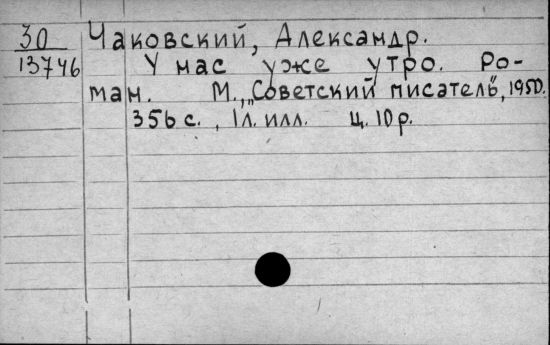 30 Чаковский, Александр.
13746 У нас уже утро. Ро-
ман. М., „Советский писатель", 1950.
356 с., 1 л. илл. Ц. 10 р.